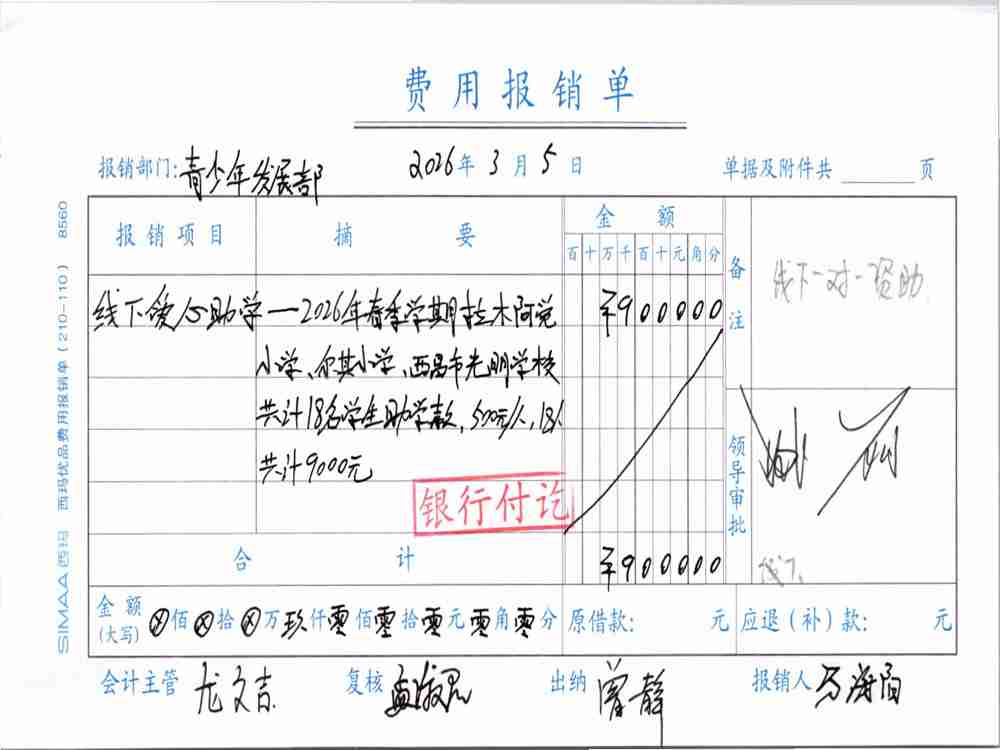 费用报销单
报销部门:青少年发展部 2026年3月5日 单据及附件共 页
报销项目 摘要 金额 备注
百十万千百十元角分
线下一对一资助
线下爱心助学—2026年春季学期拉木阿觉 ¥900000
小学、尔其小学、西昌市光明学校
共计18名学生助学款,500元/人,18人
共计9000元
银行付讫
领导审批
合计 ¥900000
金额(大写) ⊗佰⊗拾⊗万玖仟零佰零拾零元零角零分 原借款: 元 应退(补)款: 元
会计主管 尤文吉 复核 出纳 曾静 报销人 马海阳
SIMAA 西玛 西玛优品费用报销单(210-110) 8560